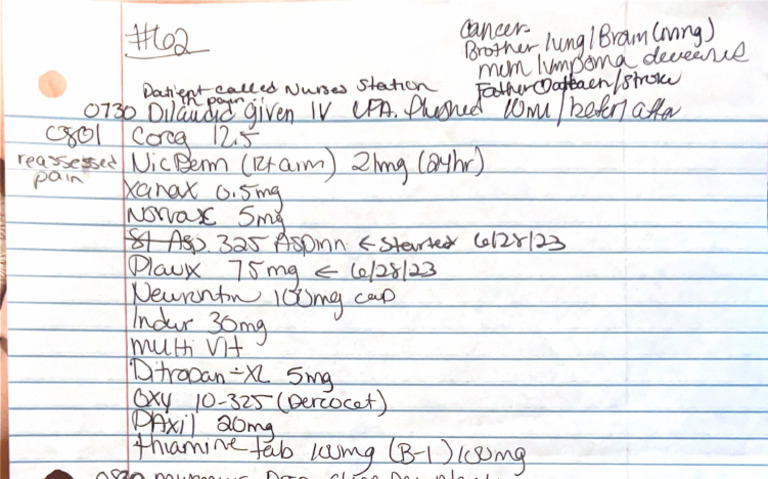 #602
Cancer
Brother lung/Brain (living)
mom lymphoma deceased
Father /stroke
Patient called Nurses Station
in pain
0730 Dilaudid given IV LFA. flushed 10ml/before/after
0801 Coreg 12.5
reassessed pain
NicDerm (Rt arm) 21mg (24hr)
Xanax 0.5mg
Norvasc 5mg
St Asp. 325 Aspirin ← Started 6/28/23
Plavix 75mg ← 6/28/23
Neurontin 100mg cap
Imdur 30mg
multi Vit
Ditropan - XL 5mg
Oxy 10-325 (Percocet)
PAxil 20mg
thiamine tab 100mg (B-1) 100mg